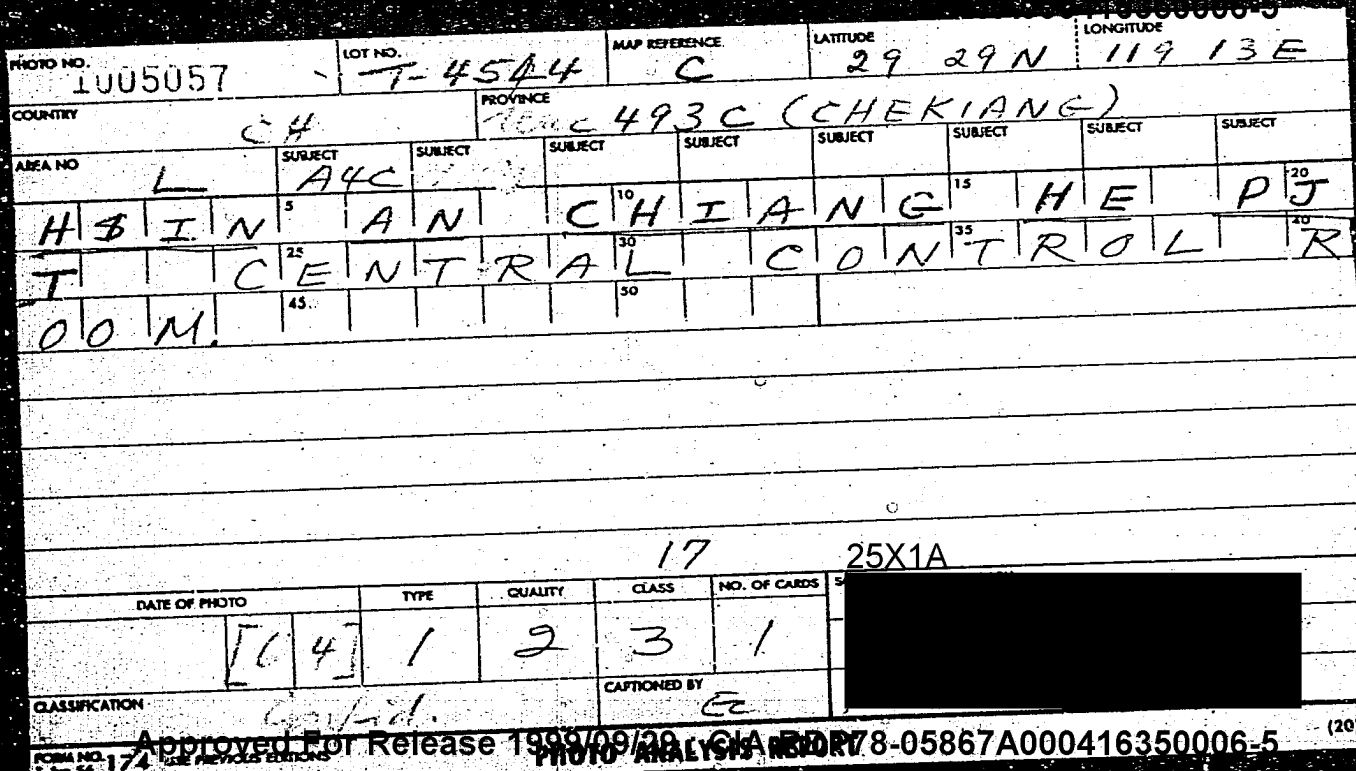 PHOTO NO. 1005057 LOT NO. T-4544 MAP REFERENCE C LATITUDE 29 29N LONGITUDE 119 13E
COUNTRY CH PROVINCE 493C (CHEKIANG)
AREA NO L SUBJECT A4C SUBJECT SUBJECT SUBJECT SUBJECT SUBJECT SUBJECT SUBJECT
5 10 15 20
H$IN AN CHIANG HE PJ
25 30 35 40
T CENTRAL CONTROL R
45 50
OOM.
17 25X1A
DATE OF PHOTO TYPE QUALITY CLASS NO. OF CARDS
4] 1 2 3 1
CLASSIFICATION Confid. CAPTIONED BY Ec
FORM NO. 174 USE PREVIOUS EDITIONS PHOTO ANALYSIS REPORT (20
Approved For Release 1999/09/29 : CIA-RDP78-05867A000416350006-5